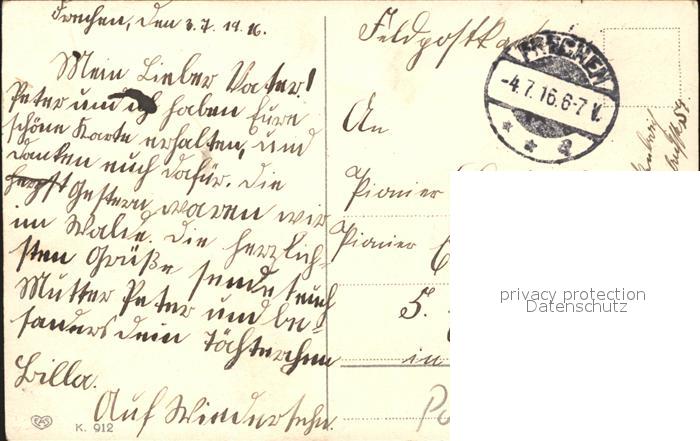 Frechen, den 3.7.1916.
Mein Lieber Vater!
Peter und ich haben Eure
schöne Karte erhalten, und
danken euch dafür. Die
Gestern waren wir
im Walde. Die herzlich-
sten Grüße sendet euch
Mutter Peter und be-
sonders dein Töchterchen
Billa.
Auf Wiedersehn.
K. 912
Feldpostkarte
FRECHEN
-4.7.16.6-7 V.
* * a
An
Pionier
Pionier
5.
in
privacy protection
Datenschutz